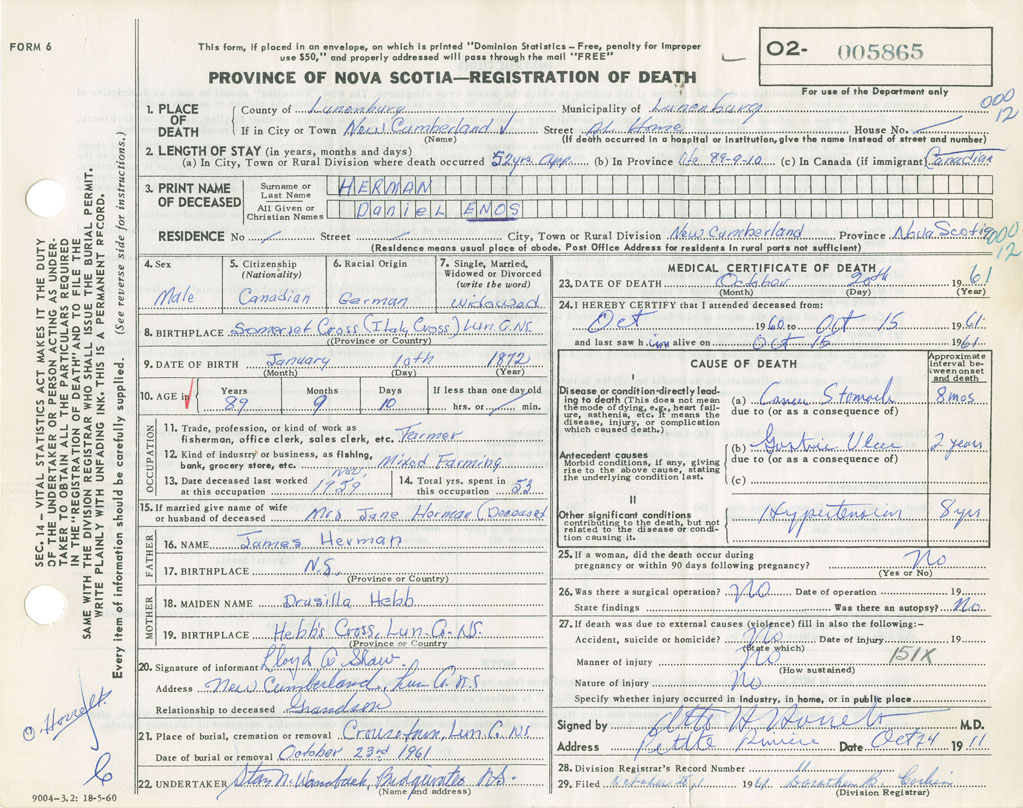 FORM 6
This form, if placed in an envelope, on which is printed "Dominion Statistics – Free, penalty for improper
use $50," and properly addressed will pass through the mail "FREE"
PROVINCE OF NOVA SCOTIA—REGISTRATION OF DEATH
O2- 005865
For use of the Department only
000
12
1. PLACE OF DEATH
County of Lunenburg Municipality of Lunenburg
If in City or Town New Cumberland Street At Home House No.
(Name) (If death occurred in a hospital or institution, give the name instead of street and number)
2. LENGTH OF STAY (in years, months and days)
(a) In City, Town or Rural Division where death occurred 52 yrs. app. (b) In Province life 89-9-10 (c) In Canada (if immigrant) Canadian
3. PRINT NAME OF DECEASED
Surname or Last Name HERMAN
All Given or Christian Names Daniel ENOS
RESIDENCE No Street City, Town or Rural Division New Cumberland Province Nova Scotia
(Residence means usual place of abode. Post Office Address for residents in rural parts not sufficient)
000
12
4. Sex
Male
5. Citizenship
(Nationality)
Canadian
6. Racial Origin
German
7. Single, Married,
Widowed or Divorced
(write the word)
widowed
8. BIRTHPLACE Somerset Cross (Italy Cross) Lun. Co. NS.
(Province or Country)
9. DATE OF BIRTH January 10th 1872
(Month) (Day) (Year)
10. AGE in
Years 89 Months 9 Days 10 If less than one day old
hrs. or min.
OCCUPATION
11. Trade, profession, or kind of work as
fisherman, office clerk, sales clerk, etc. Farmer
12. Kind of industry or business, as fishing,
bank, grocery store, etc. Mixed Farming
13. Date deceased last worked
at this occupation Nov. 1959
14. Total yrs. spent in
this occupation 53
15. If married give name of wife
or husband of deceased Mrs Jane Herman (Deceased
FATHER
16. NAME James Herman
17. BIRTHPLACE N.S.
(Province or Country)
MOTHER
18. MAIDEN NAME Drusilla Hebb
19. BIRTHPLACE Hebb's Cross, Lun. Co. NS.
(Province or Country
20. Signature of informant Lloyd Shaw.
Address New Cumberland, Lun Co. N.S
Relationship to deceased Grandson
21. Place of burial, cremation or removal Crousetown, Lun. Co NS
Date of burial or removal October 23rd 1961
22. UNDERTAKER Bridgewater N.S.
(Name and address)
MEDICAL CERTIFICATE OF DEATH
23. DATE OF DEATH October 20th 1961
(Month) (Day) (Year)
24. I HEREBY CERTIFY that I attended deceased from:
Oct 1960 to Oct 15 1961
and last saw him alive on Oct 15 1961
CAUSE OF DEATH
Approximate interval between onset and death
I
Disease or condition directly leading to death (This does not mean
the mode of dying, e.g., heart failure, asthenia, etc. It means the
disease, injury, or complication
which caused death.)
(a) Cancer Stomach 8 mos
due to (or as a consequence of)
(b) Gastric Ulcer 2 years
due to (or as a consequence of)
(c)
Antecedent causes
Morbid conditions, if any, giving
rise to the above cause, stating
the underlying condition last.
II
Other significant conditions
contributing to the death, but not
related to the disease or condition causing it.
Hypertension 8 yrs
25. If a woman, did the death occur during
pregnancy or within 90 days following pregnancy? No
(Yes or No)
26. Was there a surgical operation? No Date of operation 19
State findings Was there an autopsy? No.
27. If death was due to external causes (violence) fill in also the following:–
Accident, suicide or homicide? No Date of injury 19
(State which)
151X
Manner of injury No
(How sustained)
Nature of injury No
Specify whether injury occurred in industry, in home, or in public place
Signed by M.D.
Address Petite Riviere Date Oct 24 19
28. Division Registrar's Record Number
29. Filed October 1961
(Division Registrar)
SEC. 14 – VITAL STATISTICS ACT MAKES IT THE DUTY
OF THE UNDERTAKER OR PERSON ACTING AS UNDERTAKER TO OBTAIN ALL THE PARTICULARS REQUIRED
IN THE "REGISTRATION OF DEATH" AND TO FILE THE
SAME WITH THE DIVISION REGISTRAR WHO SHALL ISSUE THE BURIAL PERMIT.
WRITE PLAINLY WITH UNFADING INK, THIS IS A PERMANENT RECORD.
Every item of information should be carefully supplied. (See reverse side for instructions.)
9004-3.2: 18-5-60